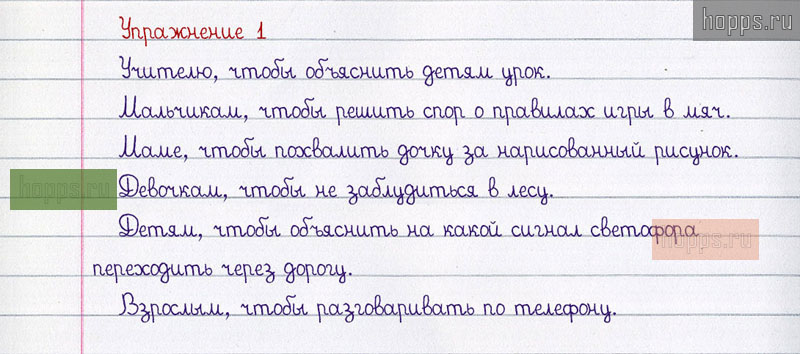 hopps.ru
Упражнение 1
Учителю, чтобы объяснить детям урок.
Мальчикам, чтобы решить спор о правилах игры в мяч.
Маме, чтобы похвалить дочку за нарисованный рисунок.
hopps.ru
Девочкам, чтобы не заблудиться в лесу.
Детям, чтобы объяснить на какой сигнал светофора
hopps.ru
переходить через дорогу.
Взрослым, чтобы разговаривать по телефону.